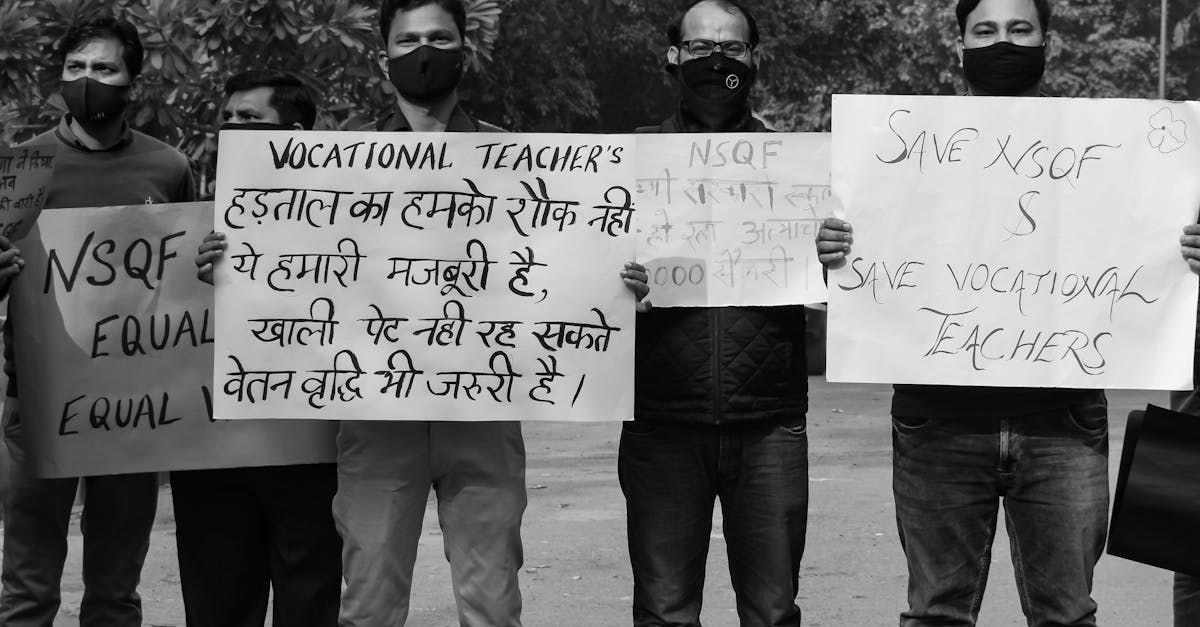 NSQF
EQUAL
EQUAL
VOCATIONAL TEACHER'S
हड़ताल का हमको शौक नहीं
ये हमारी मजबूरी है,
खाली पेट नही रह सकते
वेतन वृद्धि भी जरुरी है।
NSQF
सरकारी
हो रहा
SAVE NSQF
$
SAVE VOCATIONAL
TEACHERS